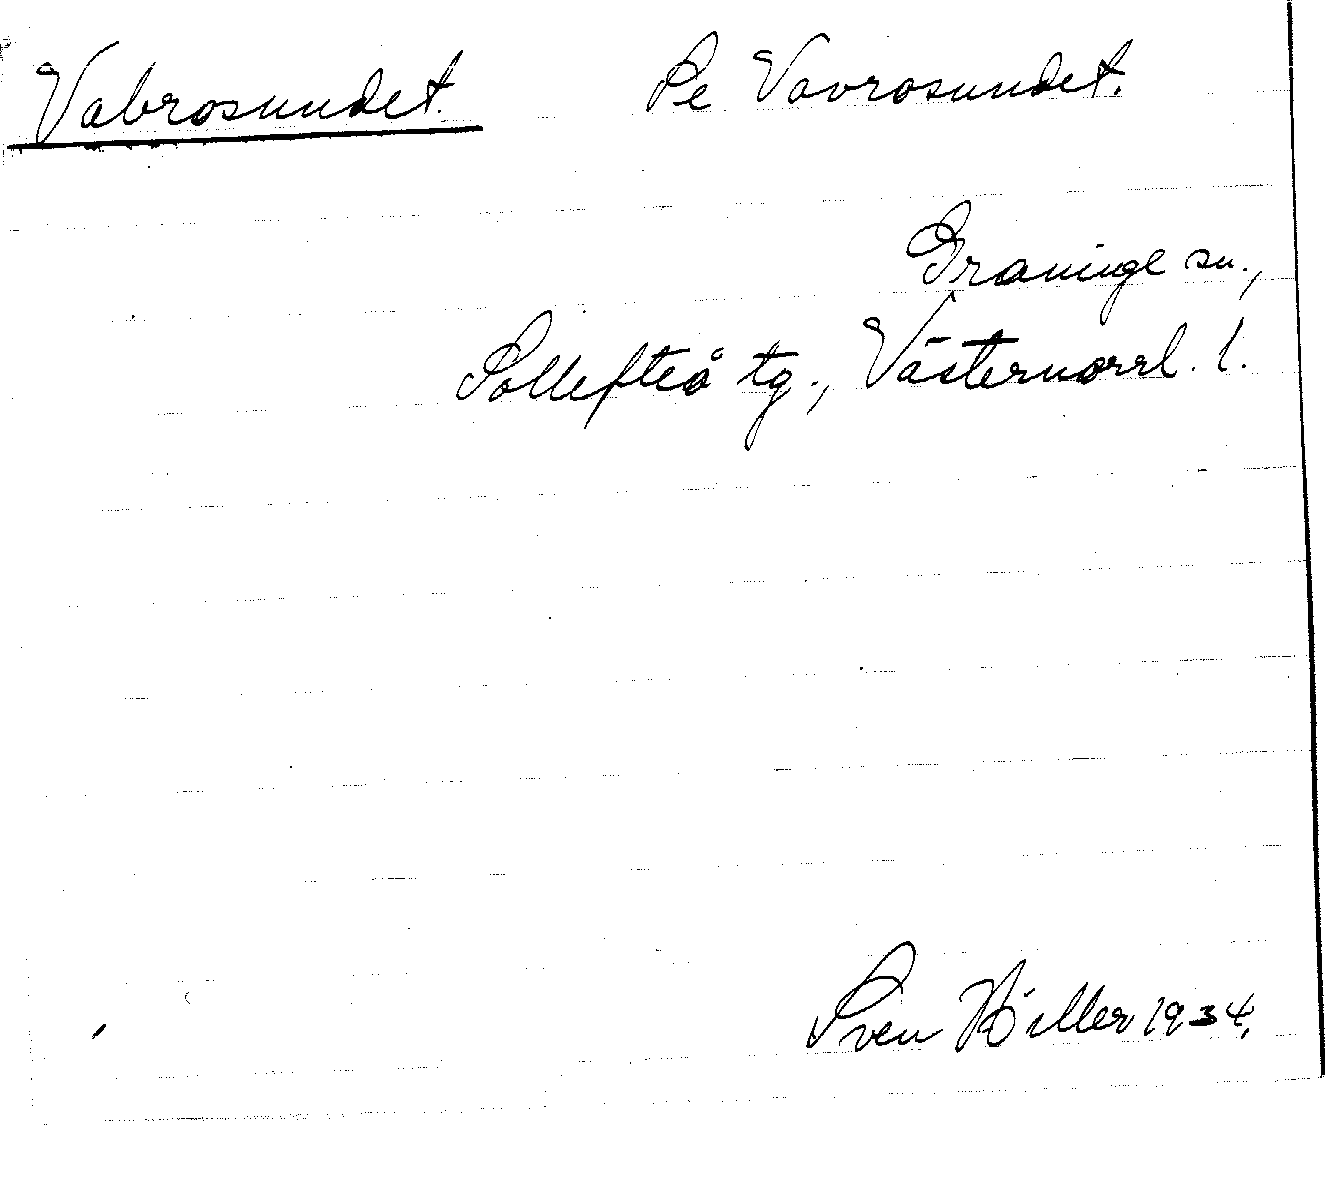 Vabrosundet. Se Vavrosundet.
Graninge sn.,
Sollefteå tg., Västernorrl. l.
Sven Hiller 1934.